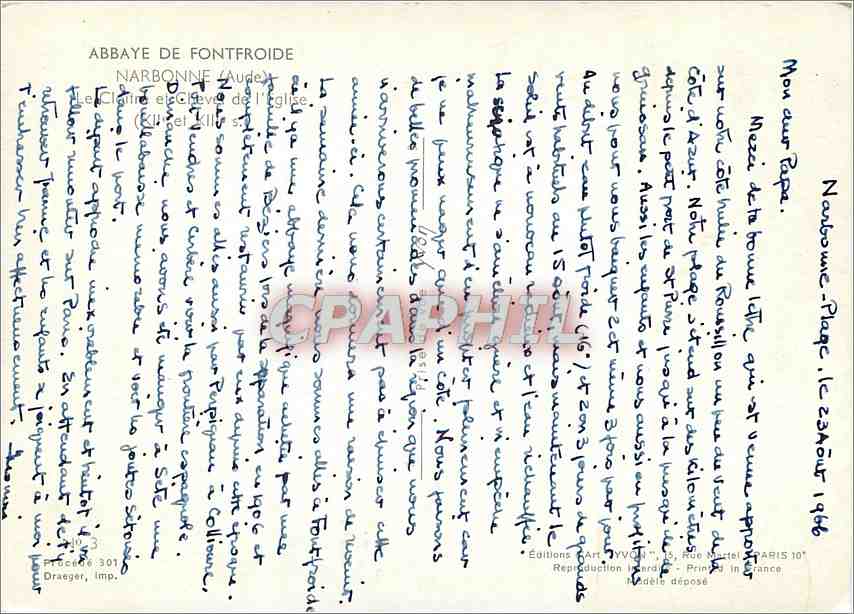 ABBAYE DE FONTFROIDE
NARBONNE (Aude)
Le Cloître et Chevet de l'Eglise
(XIIe et XIIIe s.)
Narbonne-Plage, le 23 Août 1966
Mon cher Papa.
Merci de ta bonne lettre qui est venue apporter
sur notre côte huilée du Roussillon un peu de vent de la
Côte d'Azur. Notre plage s'étend sur des Kilomètres
depuis le petit port de St Pierre jusqu'à la presqu'île de
Gruissan. Aussi les enfants et nous aussi en profitons
nous pour nous baigner 2 et même 3 fois par jour.
Au début eau plutôt froide (16°) et 2 ou 3 jours de grands
vents habituels au 15 Août, mais maintenant le
soleil est à nouveau radieux et l'eau réchauffée.
La sciatique ne s'améliore guère et m'empêche
malheureusement d'en profiter pleinement car
je ne peux nager que sur un côté. Nous faisons
de belles promenades dans la région que nous
n'arriverons certainement pas à épuiser cette
année-ci. Cela nous donnera une raison de revenir.
La semaine dernière nous sommes allés à Fontfroide
où il y a une abbaye magnifique achetée par une
famille de Béziers lors de la séparation en 1906 et
complètement restaurée par eux depuis cette époque.
Nous sommes allés aussi par Perpignan à Collioure,
Pt-Vendres et Cerbère voir la frontière espagnole.
Dimanche nous avons été manger à Sète une
bouillabaisse mémorable et voir les joutes sétoises
dans le port.
Le départ approche inexorablement et bientôt il va
falloir remonter sur Paris. En attendant de t'y
retrouver France et les enfants se joignent à moi pour
t'embrasser bien affectueusement.
CPARAPHIL
N° 3
Procédé 301
Draeger, Imp.
Éditions d'Art "YVON", 15, Rue Martel - PARIS 10e
Reproduction interdite - Printed in France
Modèle déposé